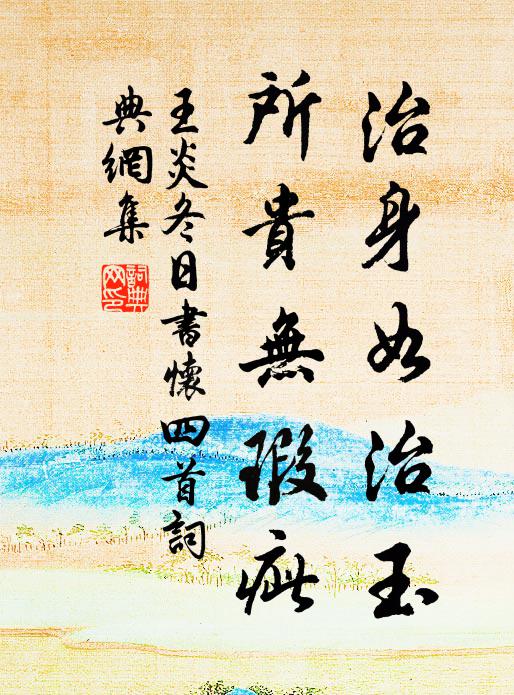 治身如治玉
所貴無瑕疵
王炎冬日書懷四首詞
典網集
詞典
网印